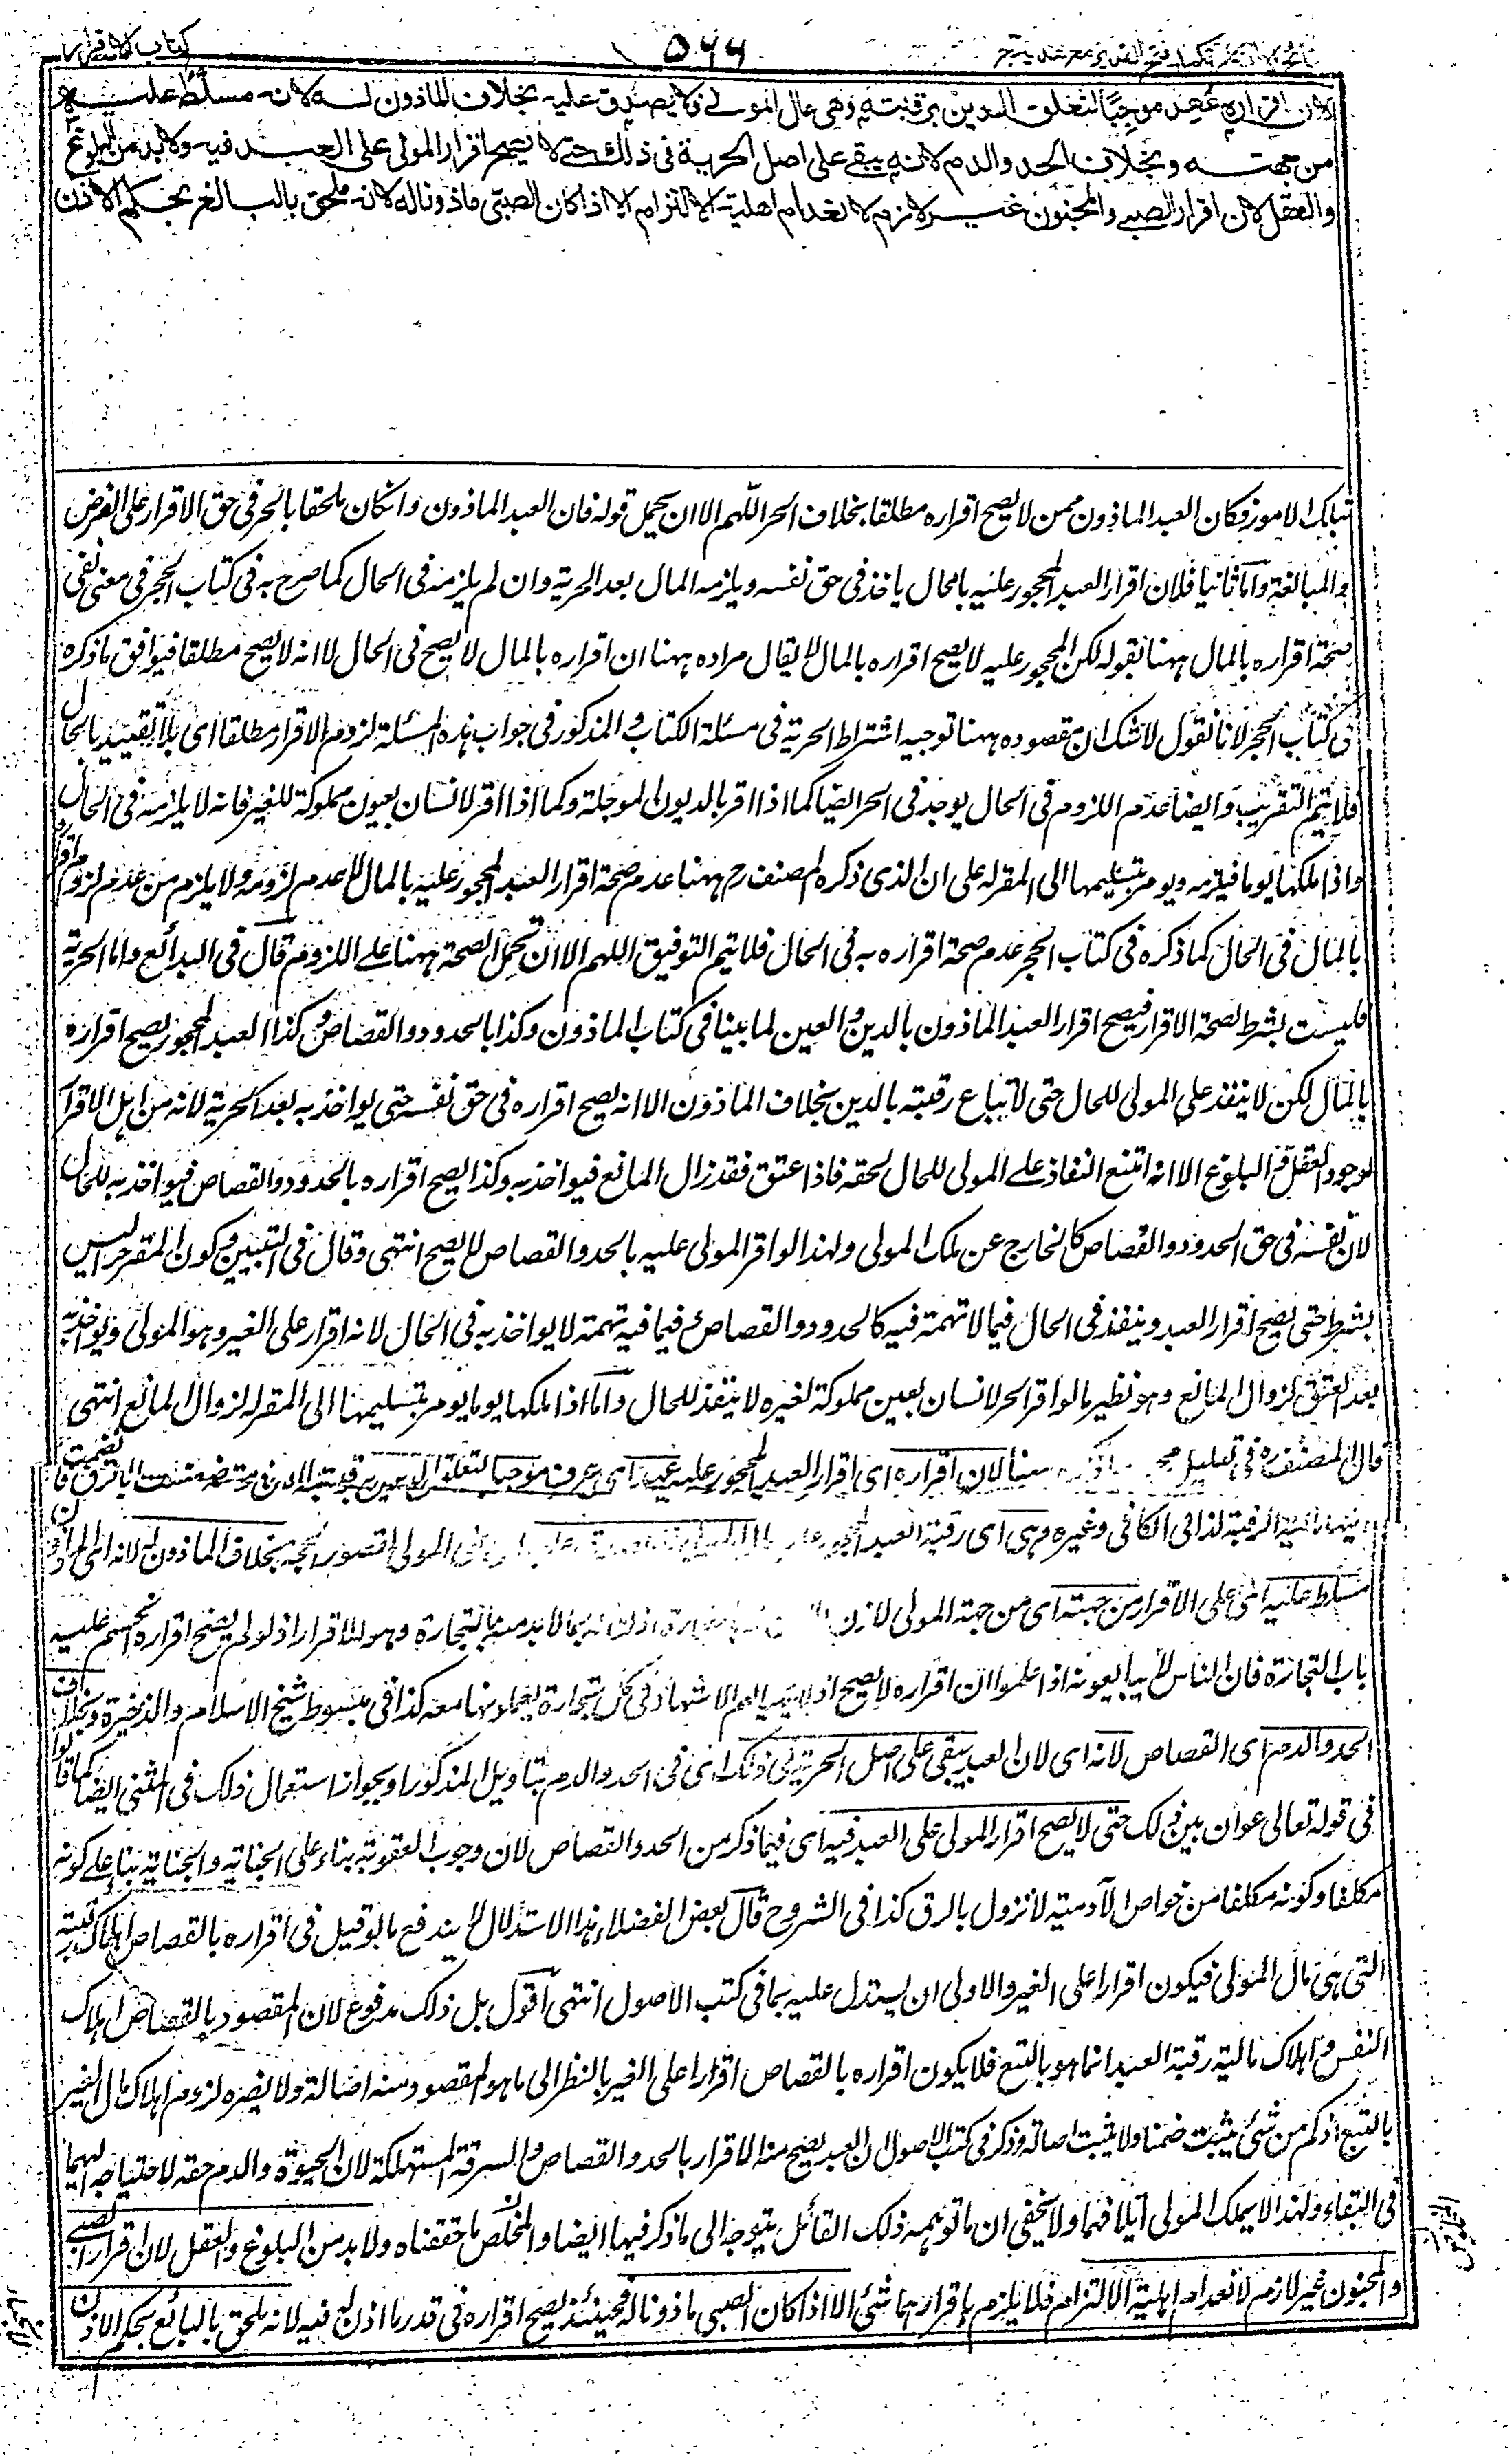 كتاب الاقرار
۵۶۶
نتائج الافكار تكملة فتح القدير مع هدايه ج
لان اقراره عهد موجبا لتعلق الدين برقبته وهى مال المولى فلا يصدق عليه بخلاف الماذون لـه لانه مسلط عليـه
من جهتـه وبخلاف الحد والدم لانه يبقى على اصل الحرية فى ذلك حتى لا يصح اقرار المولى على العبـد فيه ولا بد من البلوغ
والعقل لان اقرار الصبى والمجنون غيـر لازم لانعدام اهلية الالتزام الا اذا كان الصبى ماذونا له لانه ملحق بالبـالغ بحكم الاذن
بتلك الامور فكان العبد الماذون ممن لا يصح اقراره مطلقا بخلاف الحر اللهم الا ان يحمل قوله فان العبد الماذون وان كان ملحقا بالحر فى حق الاقرار على الفرض
والمبالغة واما ثانيا فلان اقرار العبد المحجور عليه بالمال ياخذ فى حق نفسه ويلزمه المال بعد الحرية وان لم يلزمه فى الحال كما صرح به فى كتاب الحجر فى معنى نفى
صحة اقراره بالمال ههنا بقوله لكن المحجور عليه لا يصح اقراره بالمال لا يقال مراده ههنا ان اقراره بالمال لا يصح فى الحال لا انه لا يصح مطلقا فيوافق ما ذكره
فى كتاب الحجر لانا نقول لا شك ان مقصوده ههنا توجيه اشتراط الحرية فى مسئلة الكتاب والمذكور فى جواب هذه المسئلة لزوم الاقرار مطلقا اى بلا تقييد بالحال
فلا يتم التقريب وايضا عدم اللزوم فى الحال يوجد فى الحر ايضا كما اذا اقر بالديون الموجلة وكما اذا اقر لانسان بعيون مملوكة للغير فانه لا يلزمه فى الحال
واذا ملكها يوما فيلزمه ويومر بتسليمها الى المقر له على ان الذى ذكره المصنف رح ههنا عدم صحة اقرار العبد المحجور عليه بالمال لا عدم لزومه ولا يلزم من عدم لزوم اقراره
بالمال فى الحال كما ذكره فى كتاب الحجر عدم صحة اقراره به فى الحال فلا يتم التوفيق اللهم الا ان تحمل الصحة ههنا على اللزوم قال فى البدائع واما الحرية
فليست بشرط لصحة الاقرار فيصح اقرار العبد الماذون بالدين والعين لما بينا فى كتاب الماذون وكذا بالحدود والقصاص وكذا العبد المحجور يصح اقراره
بالمال لكن لا ينفذ على المولى للحال حتى لا تباع رقبته بالدين بخلاف الماذون الا انه يصح اقراره فى حق نفسه حتى يواخذ به بعد الحرية لانه من اهل الاقرار
لوجود العقل والبلوغ الا انه امتنع النفاذ على المولى للحال لحقه فاذا عتق فقد زال المانع فيواخذ به وكذا يصح اقراره بالحدود والقصاص فيواخذ به للحال
لان نفسه فى حق الحدود والقصاص كالخارج عن ملك المولى ولهذا لو اقر المولى عليه بالحد والقصاص لا يصح انتهى وقال فى التبيين وكون المقر حرا ليس
بشرط حتى يصح اقرار العبد وينفذ فى الحال فيما لا تهمة فيه كالحدود والقصاص وفيما فيه تهمة لا يواخذ به فى الحال لانه اقرار على الغير وهو المولى ويواخذ به
بعد العتق لزوال المانع وهو نظير ما لو اقر الحر لانسان بعين مملوكة لغيره لا ينفذ للحال واما اذا ملكها يوما يومر بتسليمها الى المقر له لزوال المانع انتهى
قال المصنف رح فى تعليل لان اقراره اى اقرار العبد المحجور عليه عهد اى عرف موجبا لتعلق الدين برقبته
مالية الرقبة كذا فى الكافى وغيره وهى اى رقبة العبد المحجور المولى لقصور الحجة بخلاف الماذون له لانه اى الماذون
مسلط عليه اى على الاقرار من جهته اى من جهة المولى لان بما لا بد منه للتجارة وهو الاقرار اذ لو لم يصح اقراره انحسم عليه
باب التجارة فان الناس لا يبايعونه اذا علموا ان اقراره لا يصح اذ لا يتهيأ لهم الاشهاد فى كل تجارة يعملونها معه كذا فى مبسوط شيخ الاسلام والذخيرة وبخلاف
الحد والدم اى القصاص لانه اى لان العبد يبقى على اصل الحرية فى ذلك اى فى الحد والدم بتاويل المذكور او بجواز استعمال ذلك فى المثنى ايضا كما قالوا
فى قوله تعالى عوان بين ذلك حتى لا يصح اقرار المولى على العبد فيه اى فيما ذكر من الحد والقصاص لان وجوب العقوبة بناء على الجناية والجناية بناء على كونه
مكلفا وكونه مكلفا من خواص الآدمية لا تزول بالرق كذا فى الشروح قال بعض الفضلاء هذا الاستدلال لا يندفع ما لو قيل فى اقراره بالقصاص اهلاك رقبته
التى هى مال المولى فيكون اقرارا على الغير والاولى ان يستدل عليه بما فى كتب الاصول انتهى اقول بل ذلك مدفوع لان المقصود بالقصاص اهلاك
النفس واهلاك مالية رقبة العبد انما هو بالتبع فلا يكون اقراره بالقصاص اقرارا على الغير بالنظر الى ما هو المقصود منه اصالة ولا يضره لزوم اهلاك مال الغير
بالتبع اذ كم من شئ يثبت ضمنا ولا يثبت اصالة وذكر فى كتب الاصول ان العبد يصح منه الاقرار بالحد والقصاص والسرقة المستهلكة لان الحيوة والدم حقه لاحتياجه اليهما
فى البقاء ولهذا لا يملك المولى اتلافهما ولا يخفى ان ما توهمه ذلك القائل يتوجه الى ما ذكر فيها ايضا والمخلص ما حققناه ولا بد من البلوغ والعقل لان اقرار الصبى
والمجنون غير لازم لانعدام اهلية الالتزام فلا يلزم باقرارهما شئ الا اذا كان الصبى ماذونا له فحينئذ يصح اقراره فى قدر ما اذن له فيه لانه ملحق بالبالغ بحكم الاذن